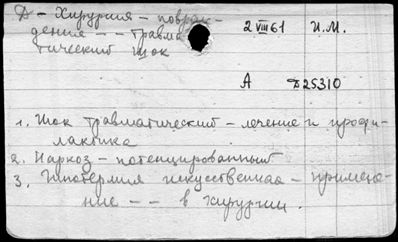 Д - Хирургия - повреж-
дения - - травма
тический шок
2 VIII 61 И.М.
А Д25310
1. Шок травматический - лечение и профи-
лактика
2. Наркоз - потенцированный
3. Гипотермия искусственная - примене-
ние - - в хирургии.